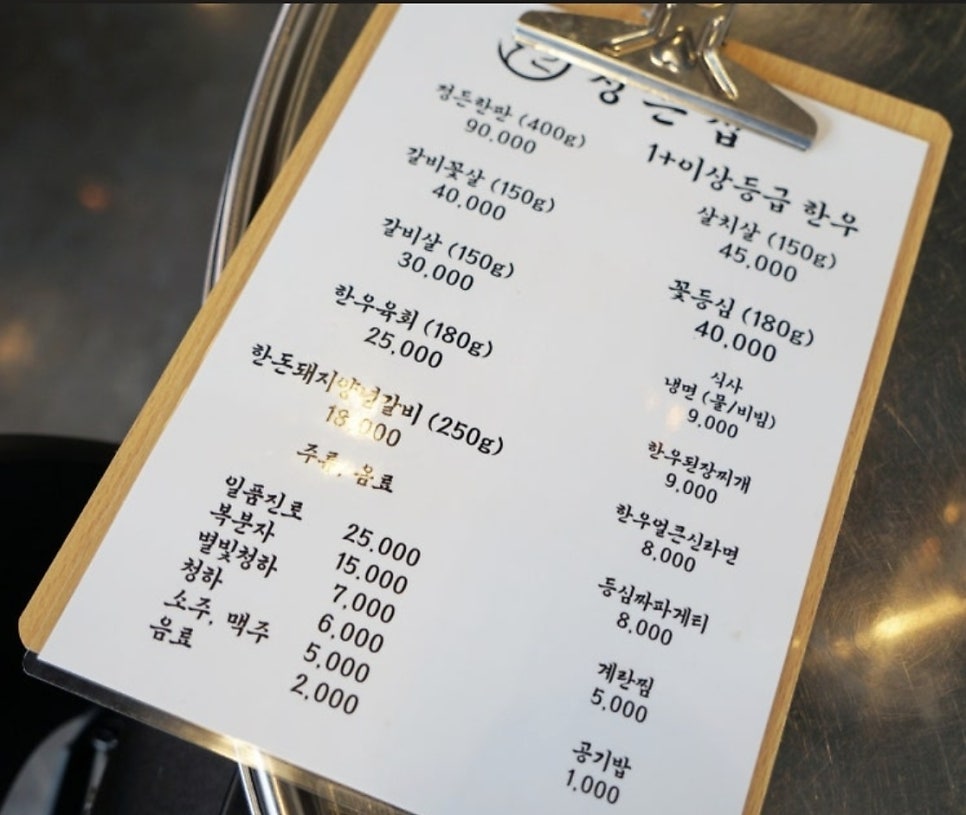 정든집
1+이상등급 한우
정든한판 (400g)
90,000
갈비꽃살 (150g)
40,000
갈비살 (150g)
30,000
한우육회 (180g)
25,000
한돈돼지양념갈비 (250g)
18,000
주류, 음료
일품진로 25,000
복분자 15,000
별빛청하 7,000
청하 6,000
소주, 맥주 5,000
음료 2,000
살치살 (150g)
45,000
꽃등심 (180g)
40,000
식사
냉면 (물/비빔)
9,000
한우된장찌개
9,000
한우얼큰신라면
8,000
등심짜파게티
8,000
계란찜
5,000
공기밥
1,000